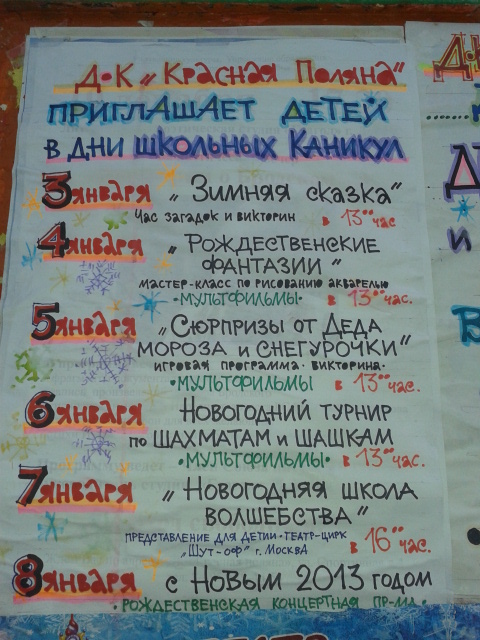 Д•К „Красная Поляна"
ПРИГЛАШАЕТ ДЕТЕЙ
В ДНИ ШКОЛЬНЫХ КАНИКУЛ
3 ЯНВАРЯ „Зимняя сказка"
Час загадок и викторин в 13⁰⁰ час
4 ЯНВАРЯ „РОЖДЕСТВЕНСКИЕ
ФАНТАЗИИ"
МАСТЕР-КЛАСС ПО РИСОВАНИЮ АКВАРЕЛЬЮ
•МУЛЬТФИЛЬМЫ• в 13⁰⁰ час.
5 ЯНВАРЯ „Сюрпризы от Деда
МОРОЗА и СНЕГУРОЧКИ"
ИГРОВАЯ ПРОГРАММА• ВИКТОРИНА•
•МУЛЬТФИЛЬМЫ в 13⁰⁰ час.
6 ЯНВАРЯ НОВОГОДНИЙ ТУРНИР
по ШАХМАТАМ и ШАШКАМ
•МУЛЬТФИЛЬМЫ• в 13⁰⁰ час.
7 ЯНВАРЯ „НОВОГОДНЯЯ ШКОЛА
ВОЛШЕБСТВА"
ПРЕДСТАВЛЕНИЕ ДЛЯ ДЕТЕИ•ТЕАТР-ЦИРК
„Шут-оф" г. МОСКВА в 16⁰⁰ час.
8 ЯНВАРЯ С НОВЫМ 2013 ГОДОМ
•РОЖДЕСТВЕНСКАЯ КОНЦЕРТНАЯ ПР-МА•